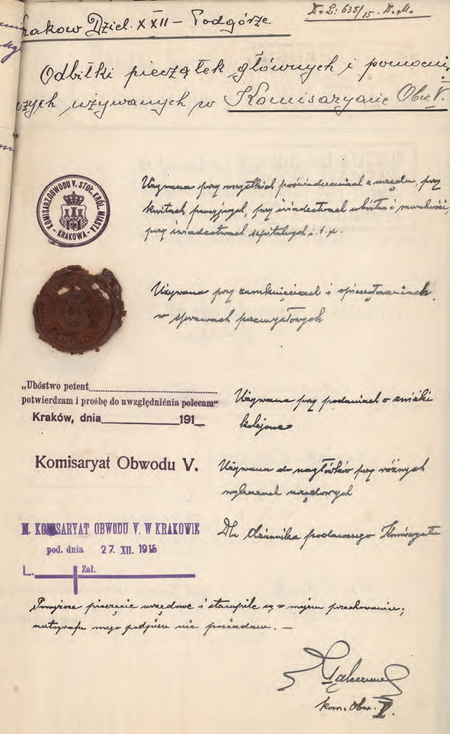 Krakow Dziel. XXII – Podgórze
Odbitki pieczątek głównych i pomocni-
czych używanych w Komisaryacie Obw. V.
KOMISARZ OBWODU V. STOŁ. KRÓL. MIASTA
KRAKOWA
Używana przy wszystkich poświadczeniach z urzędu, przy
kwitach przy świadectwach ubóstwa i moralności,
przy świadectwach szpitalnych i t. p.
Używana przy zamknięciach i opieczętowaniach
w sprawach przemysłowych
„Ubóstwo petent
potwierdzam i prośbę do uwzględnienia polecam"
Kraków, dnia 191
Używana przy podaniach o zniżki
kolejowe
Komisaryat Obwodu V.
Używana do nagłówków przy różnych
wykazach urzędowych
M. KOMISARYAT OBWODU V. W KRAKOWIE
pod. dnia 27. XII. 1915
L. Zał.
Dla dziennika podawczego Komisaryatu
Powyższe pieczęcie urzędowe i stampile są w mojem przechowaniu;
autografu mego podpisu nie posiadam. —
kom. Obw. V